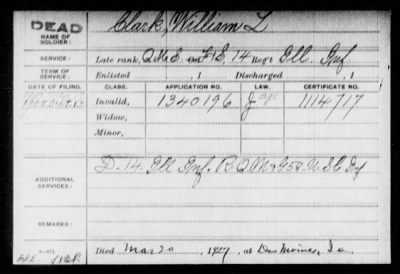 DEAD
NAME OF SOLDIER:
Clark, William L
SERVICE:
Late rank, Q.M.S. F&S, 14 Reg't Ill. Inf
TERM OF SERVICE:
Enlisted , 1 Discharged , 1
DATE OF FILING. CLASS. APPLICATION NO. LAW. CERTIFICATE NO.
Invalid, 1340196 Age 1114717
Widow,
Minor,
ADDITIONAL SERVICES:
D. 14. Ill Inf. R.Q.M. 53 U.S.C. Inf
REMARKS:
Died Mar 20, 1927, at Des Moines, Ia.